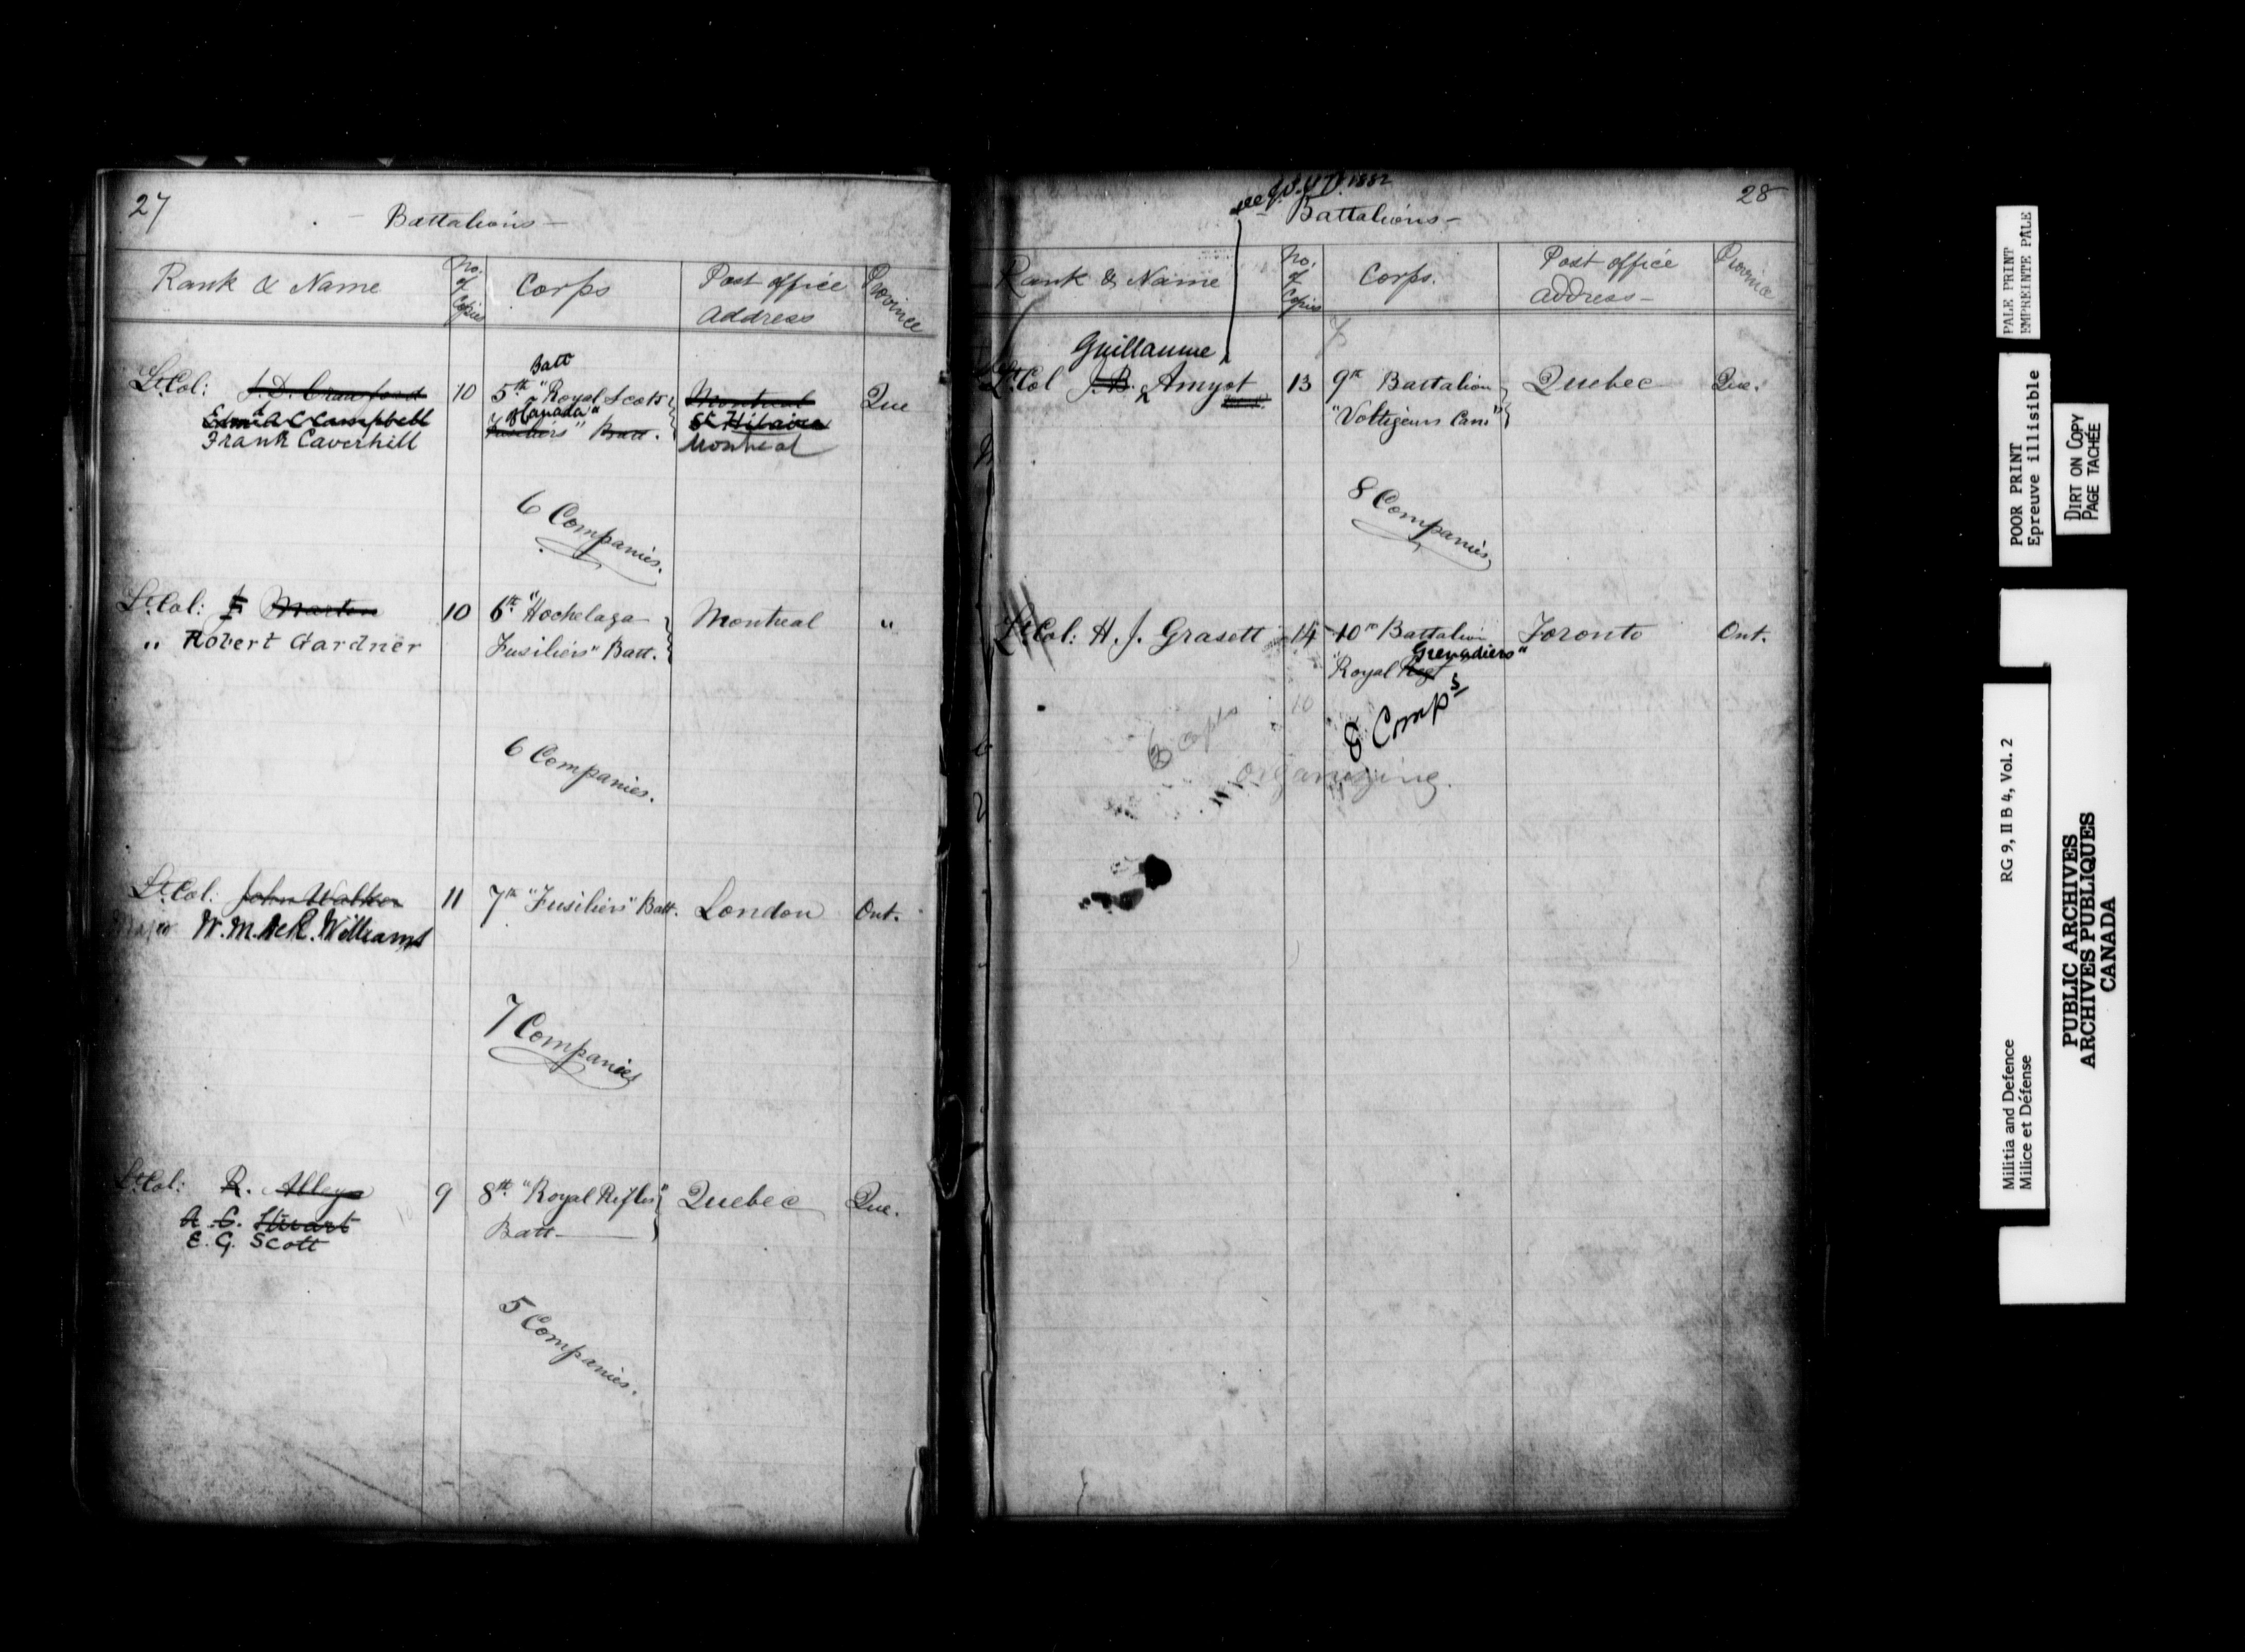 27
- Battalions -
Rank & Name No. of Copies Corps Post office Address Province
Lt. Col: J. D. Crawford 10 5th Batt "Royal Scots Montreal Que
Edmd A C Campbell of Canada" Fusiliers" Batt. St Hilaire
Frank Caverhill Montreal
6 Companies.
Lt. Col: F Martin 10 6th "Hochelaga Montreal "
" Robert Gardner Fusiliers" Batt.
6 Companies.
Lt. Col: John Walker 11 7th "Fusiliers" Batt. London Ont.
Major W. M. De R. Williams
7 Companies
Lt. Col: R. Alleyn 9 8th "Royal Rifles" Quebec Que.
A. C. Stuart Batt
E. G. Scott
5 Companies.
28
see 1882
Battalions -
Rank & Name No. of Copies Corps. Post office Address - Province
Guillaume
Lt. Col J. B. Amyot 13 9th Battalion Quebec Que.
"Voltigeurs Can"
8 Companies
Lt. Col: H. J. Grasett 14 10th Battalion Toronto Ont.
Grenadiers"
"Royal Regt
10
8 Comps
6 Capts
organizing.
PALE PRINT
EMPREINTE PALE
POOR PRINT
Epreuve illisible
DIRT ON COPY
PAGE TACHÉE
Militia and Defence RG 9, II B 4, Vol. 2
Milice et Défense
PUBLIC ARCHIVES
ARCHIVES PUBLIQUES
CANADA